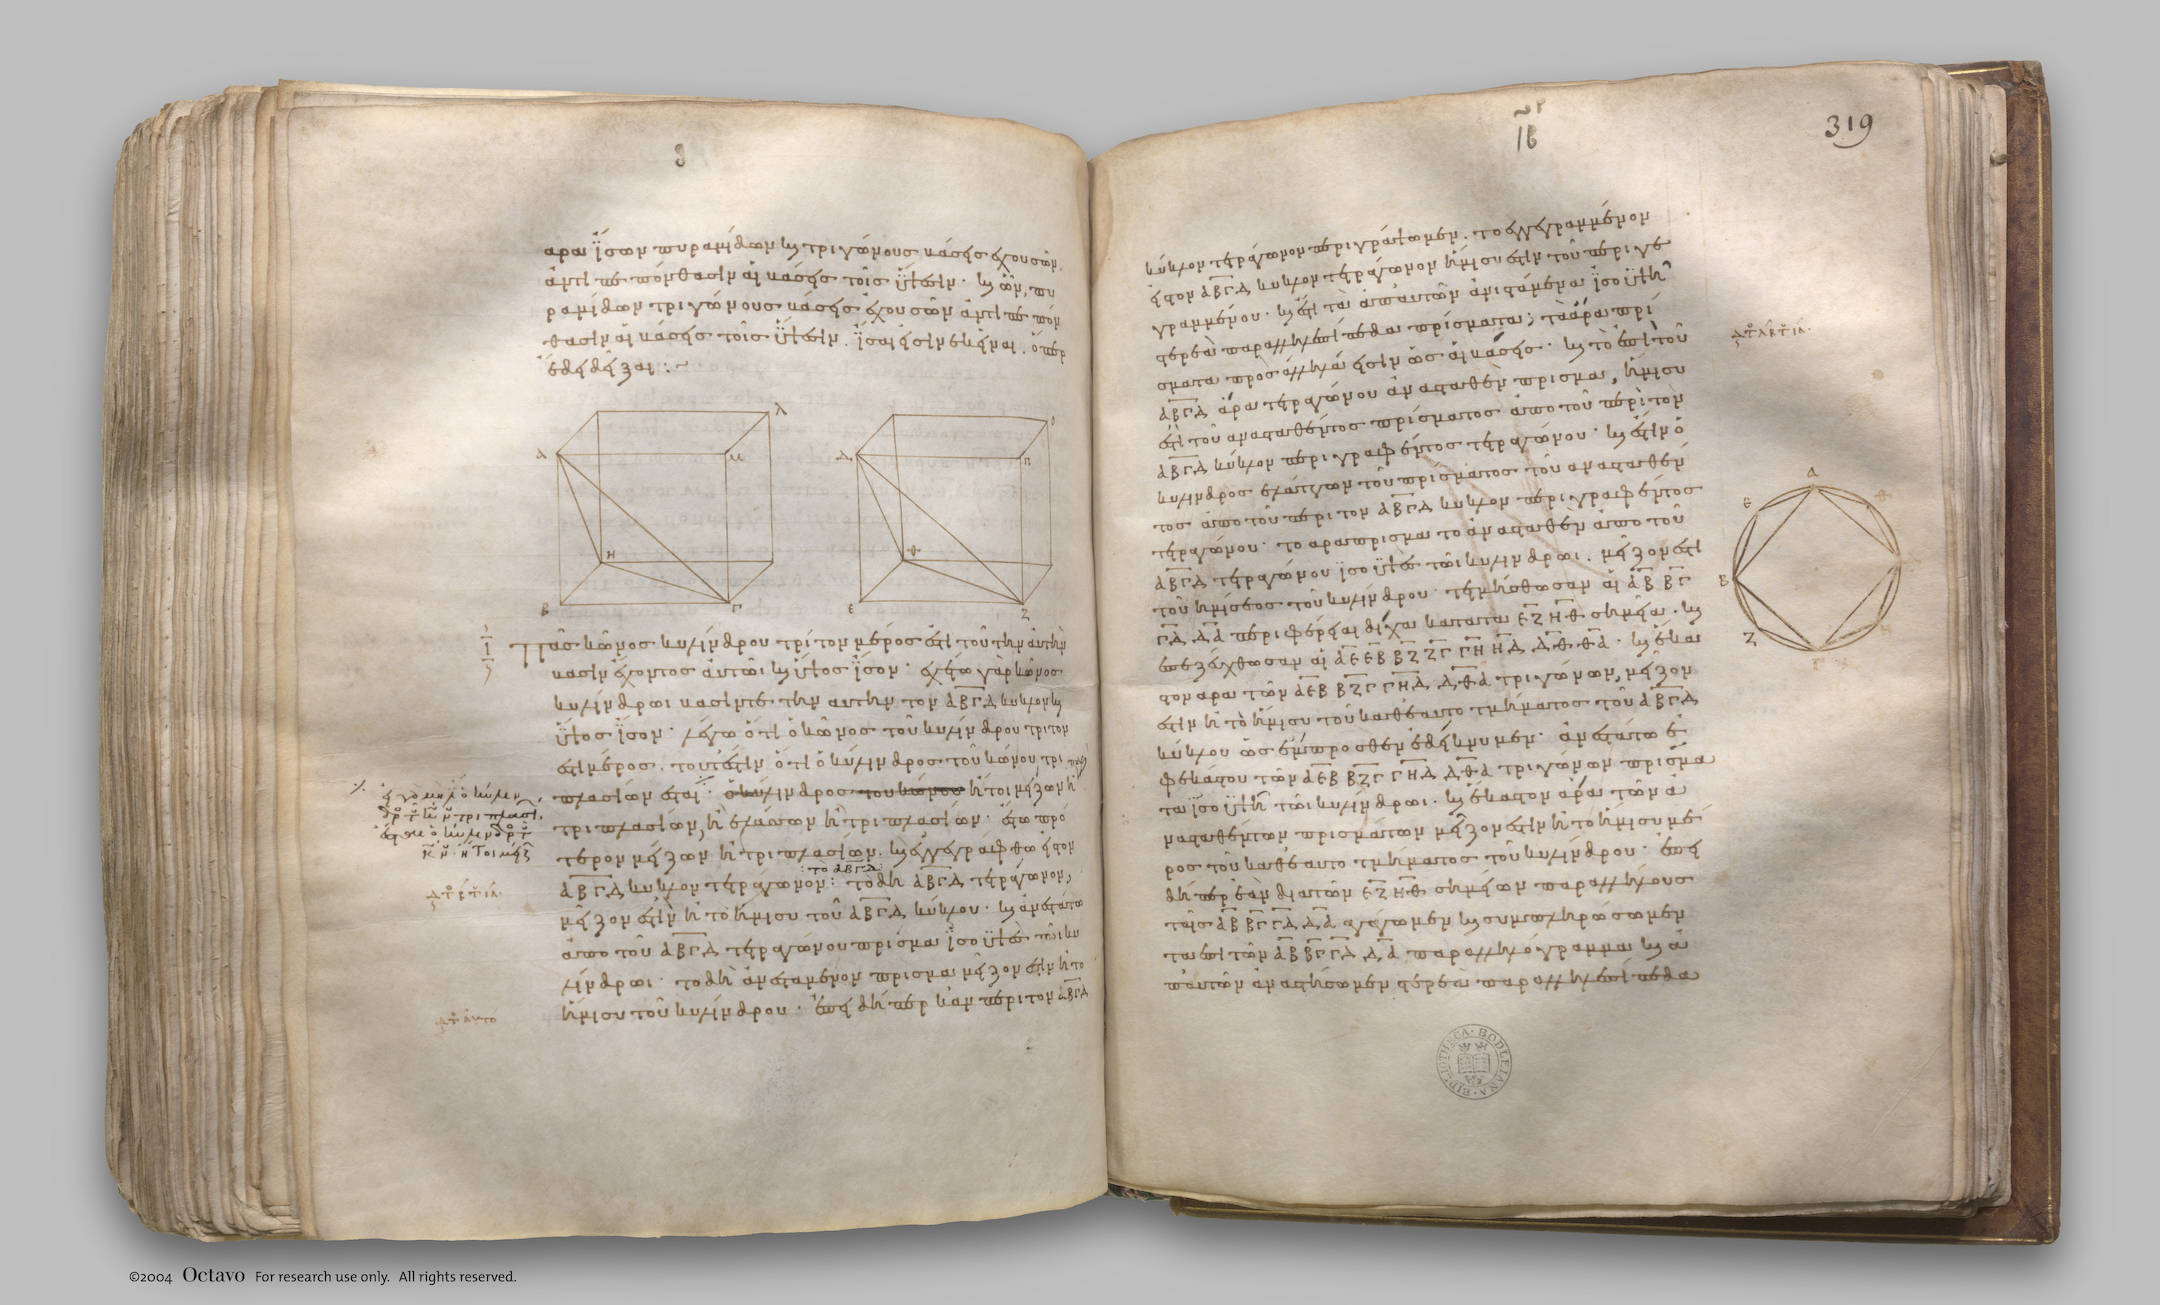 ἄρα ἴσων πυραμίδων καὶ τριγώνους βάσεις ἐχουσῶν
ἀντιπεπόνθασιν αἱ βάσεις τοῖς ὕψεσιν· καὶ ὧν πυ
ραμίδων τριγώνους βάσεις ἐχουσῶν ἀντιπεπόν
θασιν αἱ βάσεις τοῖς ὕψεσιν, ἴσαι εἰσὶν ἐκεῖναι. ὅπερ
ἔδει δεῖξαι:~
Λ Ο
Α Μ Δ Π
Η Θ
Β Γ Ε Ζ
Πᾶς κῶνος κυλίνδρου τρίτον μέρος ἐστὶ τοῦ τὴν αὐτὴν
βάσιν ἔχοντος αὐτῶι καὶ ὕψος ἴσον· ἐχέτω γὰρ κῶνος
κυλίνδρωι βάσιν τε τὴν αὐτὴν τὸν ΑΒΓΔ κύκλον καὶ
ὕψος ἴσον· λέγω ὅτι ὁ κῶνος τοῦ κυλίνδρου τρίτον
ἐστὶ μέρος. τουτέστιν ὅτι ὁ κύλινδρος τοῦ κώνου τρι
πλασίων ἐσται· ὁ κύλινδρος τοῦ κώνου ἤτοι μείζων ἢ
τριπλασίων, ἢ ἐλάσσων ἢ τριπλασίων· ἔστω πρό
τερον μείζων ἢ τριπλασίων. καὶ ἐγγεγράφθω εἰς τὸν
τὸ ΑΒΓΔ
ΑΒΓΔ κύκλον τετράγωνον: τὸ δὴ ΑΒΓΔ τετράγωνον,
μεῖζον ἐστὶν ἢ τὸ ἥμισυ τοῦ ΑΒΓΔ κύκλου· καὶ ἀνεστάτω
ἀπὸ τοῦ ΑΒΓΔ τετραγώνου πρίσμα ἰσοϋψὲς τῶι κυ
λίνδρωι· τὸ δὴ ἀνεσταμενον πρίσμα μεῖζον ἐστὶν ἢ τὸ
ἥμισυ τοῦ κυλίνδρου· ἐπειδήπερ κἂν περὶ τὸν ΑΒΓΔ
319
κύκλον τετράγωνον περιγράψωμεν. τὸ ἐγγεγραμμένον
εἰς τὸν ΑΒΓΔ κύκλον τετράγωνον ἥμισυ ἐστὶν τοῦ περιγε
γραμμένου· καὶ ἐστι τὰ ἀπ' αὐτῶν ἀνιστάμενα ἰσοϋψῆ
στερεὰ παραλληλεπίπεδα πρίσματα· τὰ ἄρα πρί
σματα πρὸς ἄλληλά εἰσιν ὡς αἱ βάσεις· καὶ τὸ ἐπὶ τοῦ
ΑΒΓΔ ἄρα τετραγώνου ἀνασταθὲν πρίσμα, ἥμισυ
ἐστι τοῦ ἀνασταθέντος πρίσματος ἀπὸ τοῦ περὶ τὸν
ΑΒΓΔ κύκλον περιγραφέντος τετραγώνου· καὶ ἐστὶν ὁ
κύλινδρος ἐλάττων τοῦ πρίσματος τοῦ ἀνασταθέν
τος ἀπὸ τοῦ περὶ τὸν ΑΒΓΔ κύκλον περιγραφέντος
τετραγώνου· τὸ ἄρα πρίσμα τὸ ἀνασταθὲν ἀπὸ τοῦ
ΑΒΓΔ τετραγώνου ἰσοϋψὲς τῶι κυλίνδρωι. μεῖζον ἐστὶ
τοῦ ἡμίσεος τοῦ κυλίνδρου· τετμήσθωσαν αἱ ΑΒ ΒΓ
ΓΔ ΔΑ περιφέρειαι δίχα κατὰ τὰ ΕΖΗΘ σημεῖα. καὶ
ἐπεζεύχθωσαν αἱ ΑΕ ΕΒ ΒΖ ΖΓ ΓΗ ΗΔ ΔΘ ΘΑ· καὶ ἕκα
στον ἄρα τῶν ΑΕΒ ΒΖΓ ΓΗΔ ΔΘΑ τριγώνων, μεῖζον
ἐστὶν ἢ τὸ ἥμισυ τοῦ καθ' ἑαυτὸ τμήματος τοῦ ΑΒΓΔ
κύκλου ὡς ἔμπροσθεν ἐδείκνυμεν· ἀνεστάτω ἐ
φ' ἑκάστου τῶν ΑΕΒ ΒΖΓ ΓΗΔ ΔΘΑ τριγώνων πρίσμα
τα ἰσοϋψῆ τῶι κυλίνδρωι. καὶ ἕκαστον ἄρα τῶν ἀ
νασταθέντων πρισμάτων μεῖζον ἐστὶν ἢ τὸ ἥμισυ μέ
ρος τοῦ καθ' ἑαυτὸ τμήματος τοῦ κυλίνδρου· ἐπει
δήπερ ἐὰν διὰ τῶν ΕΖΗΘ σημείων παραλλήλους
ταῖς ΑΒ ΒΓ ΓΔ ΔΑ ἀγάγωμεν καὶ συμπληρώσωμεν
τὰ ἐπὶ τῶν ΑΒ ΒΓ ΓΔ ΔΑ παραλληλόγραμμα καὶ ἀ
π' αὐτῶν ἀναστήσωμεν στερεὰ παραλληλεπίπεδα
Α
Ε Θ
Β
Ζ Η
Γ
BIBLIOTHECA BODLEIANA
©2004 Octavo For research use only. All rights reserved.